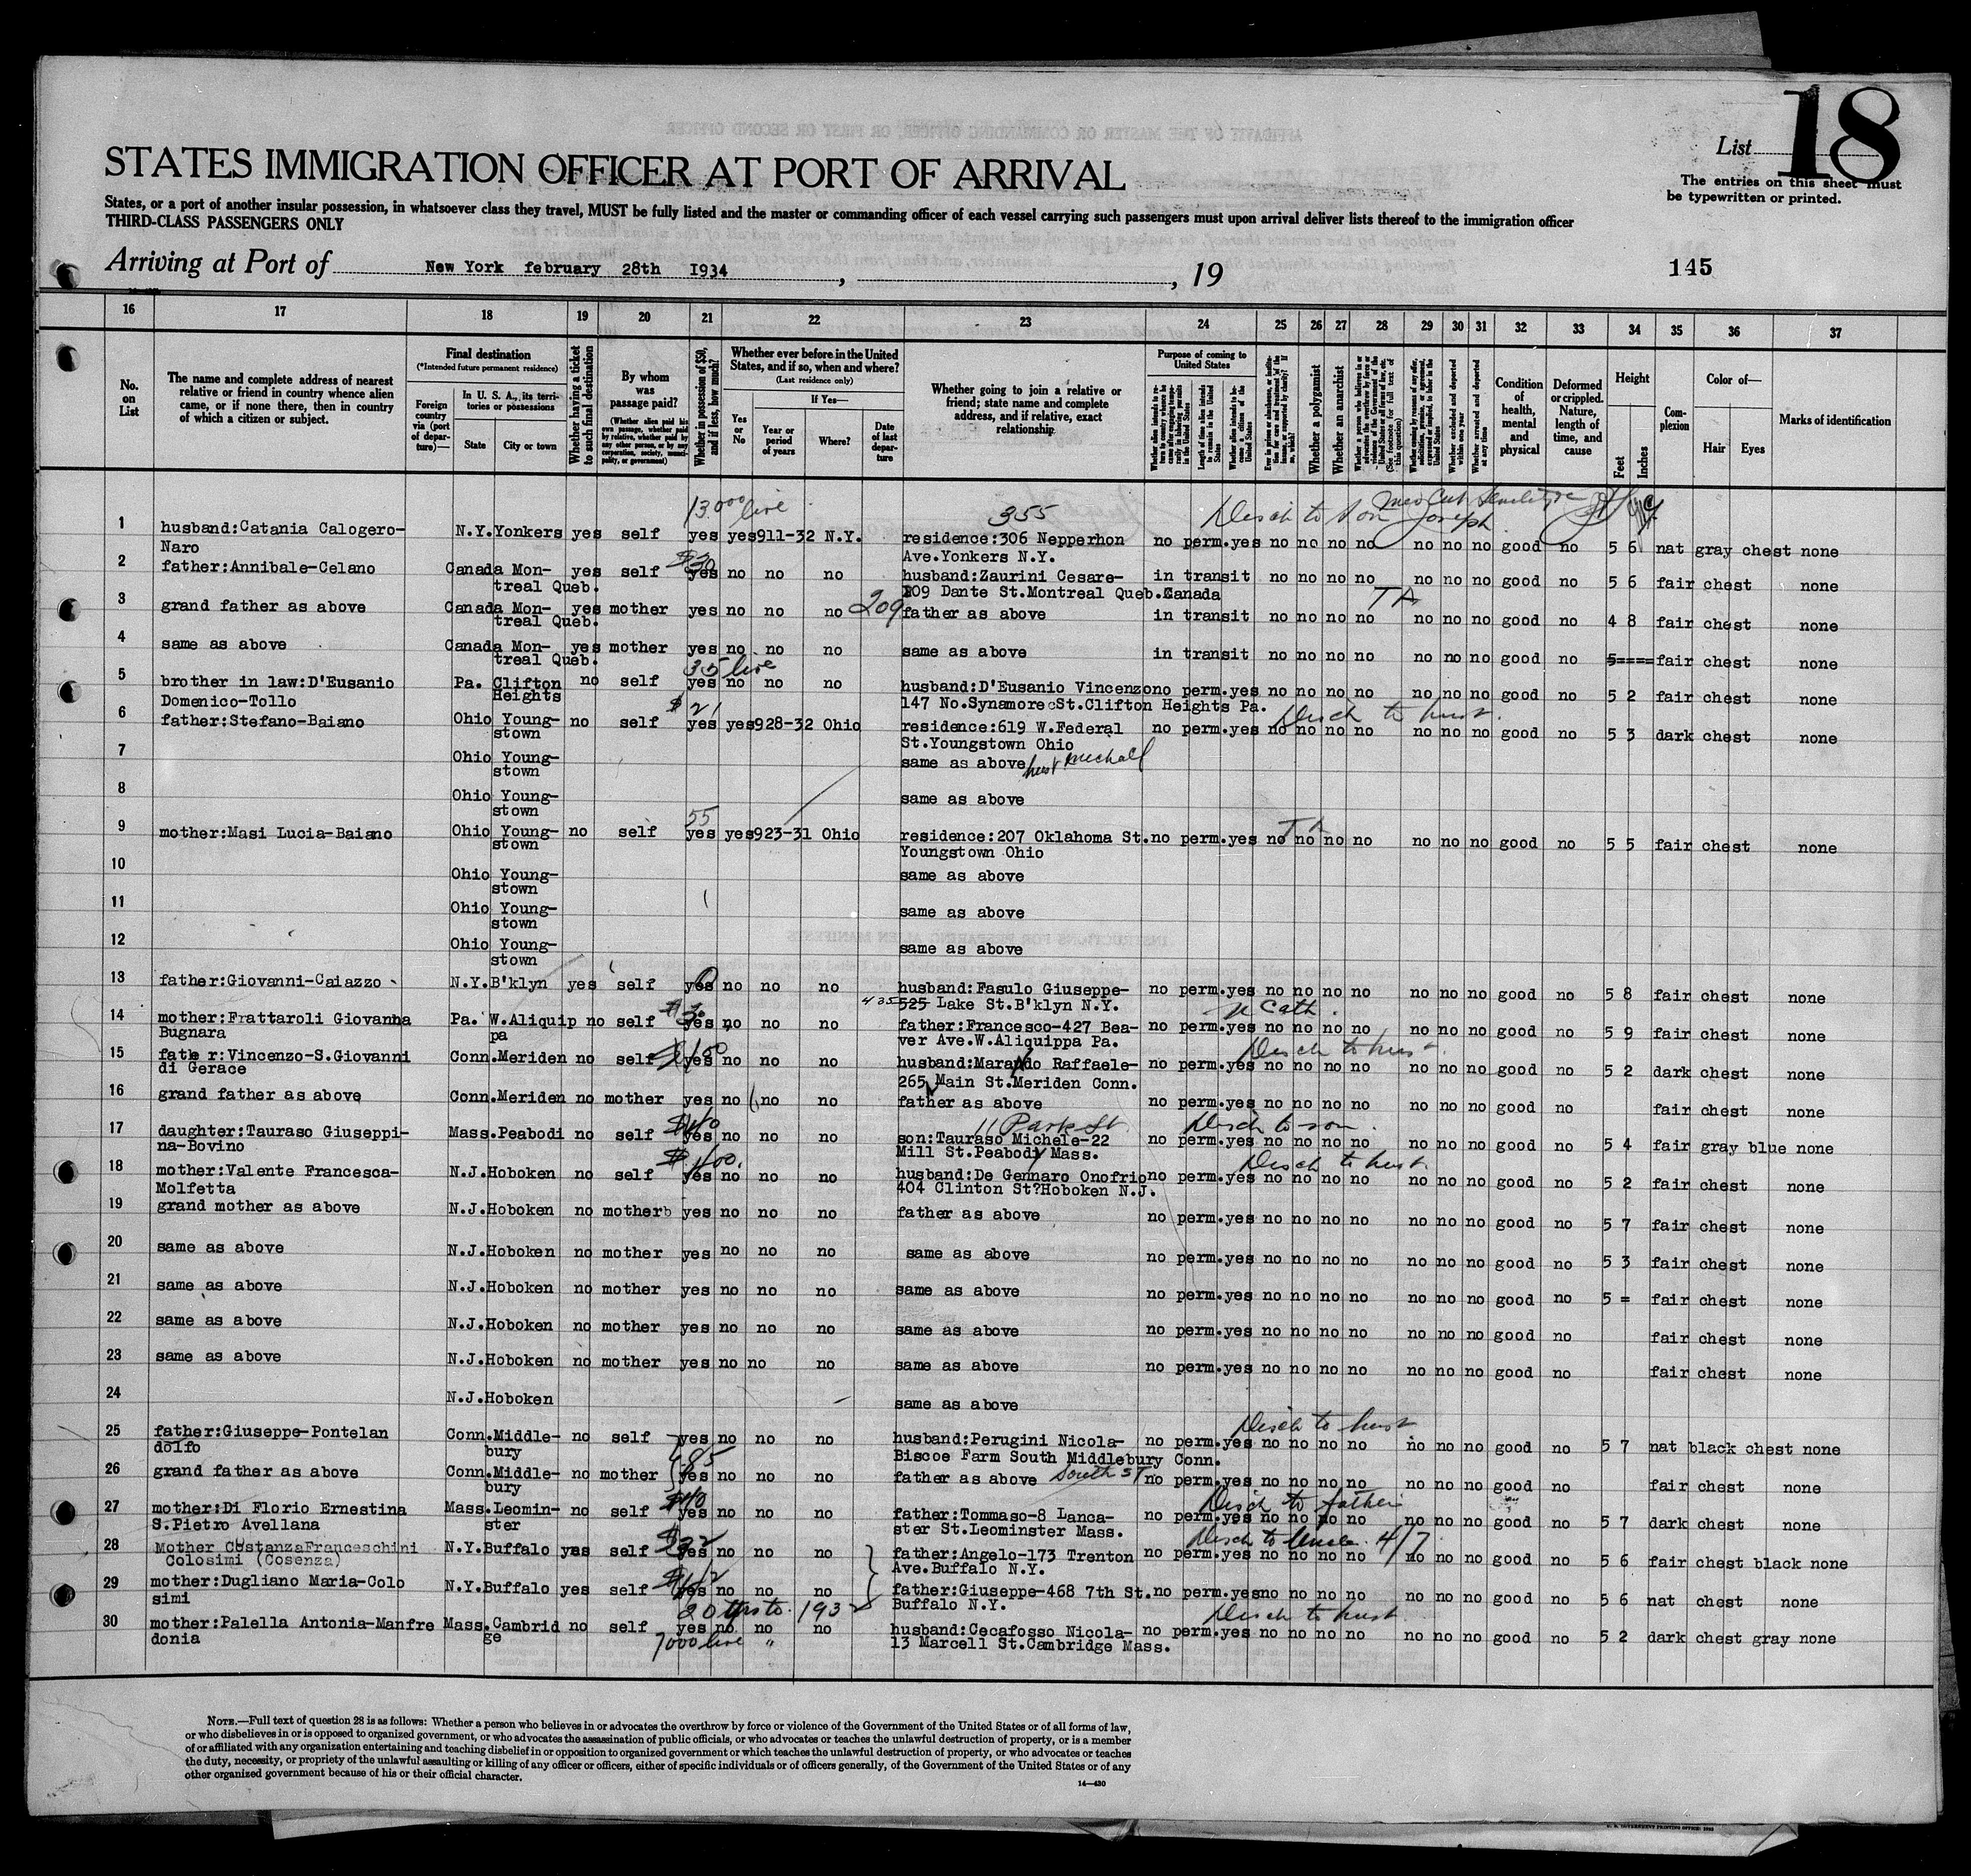 18
List
STATES IMMIGRATION OFFICER AT PORT OF ARRIVAL
The entries on this sheet must
be typewritten or printed.
States, or a port of another insular possession, in whatsoever class they travel, MUST be fully listed and the master or commanding officer of each vessel carrying such passengers must upon arrival deliver lists thereof to the immigration officer
THIRD-CLASS PASSENGERS ONLY
Arriving at Port of New York february 28th I934, , 19
145
16 17 18 19 20 21 22 23 24 25 26 27 28 29 30 31 32 33 34 35 36 37
No. on List
The name and complete address of nearest relative or friend in country whence alien came, or if none there, then in country of which a citizen or subject.
Final destination
(*Intended future permanent residence)
Foreign country via (port of departure)—
In U. S. A., its territories or possessions
State
City or town
Whether having a ticket to such final destination
By whom was passage paid?
(Whether alien paid his own passage, whether paid by relative, whether paid by any other person, or by any corporation, society, municipality, or government)
Whether in possession of $50, and if less, how much?
Whether ever before in the United States, and if so, when and where?
(Last residence only)
Yes or No
If Yes—
Year or period of years
Where?
Date of last departure
Whether going to join a relative or friend; state name and complete address, and if relative, exact relationship
Purpose of coming to United States
Length of time alien intends to remain in the United States
Whether alien intends to become a citizen of the United States
Whether a polygamist
Whether an anarchist
Whether excluded and deported within one year
Whether arrested and deported at any time
Condition of health, mental and physical
Deformed or crippled. Nature, length of time, and cause
Height
Feet
Inches
Complexion
Color of—
Hair
Eyes
Marks of identification
13.000 lire
355
Disch to son Joseph
1 husband:Catania Calogero- N.Y. Yonkers yes self yes yes 911-32 N.Y. residence:306 Nepperhon no perm. yes no no no no no no no good no 5 6 nat gray chest none
Naro Ave.Yonkers N.Y.
$30
2 father:Annibale-Celano Canada Mon- yes self yes no no no husband:Zaurini Cesare- in transit no no no no no no no good no 5 6 fair chest none
treal Queb. 209 Dante St.Montreal Queb.Canada
209 TA
3 grand father as above Canada Mon- yes mother yes no no no father as above in transit no no no no no no no good no 4 8 fair chest none
treal Queb.
4 same as above Canada Mon- yes mother yes no no no same as above in transit no no no no no no no good no 5==== fair chest none
treal Queb.
35 lire
5 brother in law:D'Eusanio Pa. Clifton no self yes no no no husband:D'Eusanio Vincenzo no perm. yes no no no no no no no good no 5 2 fair chest none
Domenico-Tollo Heights 147 No.Synamore St.Clifton Heights Pa.
$21 Disch to hust.
6 father:Stefano-Baiano Ohio Young- no self yes yes 928-32 Ohio residence:619 W.Federal no perm. yes no no no no no no no good no 5 3 dark chest none
stown St.Youngstown Ohio
7 Ohio Young- same as above hust Michall
stown
8 Ohio Young- same as above
stown
55 TA
9 mother:Masi Lucia-Baiano Ohio Young- no self yes yes 923-31 Ohio residence:207 Oklahoma St. no perm. yes no no no no no no no good no 5 5 fair chest none
stown Youngstown Ohio
10 Ohio Young- same as above
stown
11 Ohio Young- same as above
stown
12 Ohio Young- same as above
stown
0
13 father:Giovanni-Caiazzo N.Y. B'klyn yes self yes no no no husband:Fasulo Giuseppe- no perm. yes no no no no no no no good no 5 8 fair chest none
435 525 Lake St.B'klyn N.Y.
$30 Cath.
14 mother:Frattaroli Giovanna Pa. W.Aliquip no self yes no no no father:Francesco-427 Bea- no perm. yes no no no no no no no good no 5 9 fair chest none
Bugnara pa ver Ave.W.Aliquippa Pa.
$150 Disch to hust.
15 father:Vincenzo-S.Giovanni Conn. Meriden no self yes no no no husband:Marando Raffaele- no perm. yes no no no no no no no good no 5 2 dark chest none
di Gerace 265 Main St.Meriden Conn.
16 grand father as above Conn. Meriden no mother yes no no no father as above no perm. yes no no no no no no no good no fair chest none
$40 11 Park St Disch to son.
17 daughter:Tauraso Giuseppi- Mass. Peabodi no self yes no no no son:Tauraso Michele-22 no perm. yes no no no no no no no good no 5 4 fair gray blue none
na-Bovino Mill St.Peabody Mass.
$400. Disch to hust.
18 mother:Valente Francesca- N.J. Hoboken no self yes no no no husband:De Gennaro Onofrio no perm. yes no no no no no no no good no 5 2 fair chest none
Molfetta 404 Clinton St?Hoboken N.J.
19 grand mother as above N.J. Hoboken no mother yes no no no father as above no perm. yes no no no no no no no good no 5 7 fair chest none
20 same as above N.J. Hoboken no mother yes no no no same as above no perm. yes no no no no no no no good no 5 3 fair chest none
21 same as above N.J. Hoboken no mother yes no no no same as above no perm. yes no no no no no no no good no 5 = fair chest none
22 same as above N.J. Hoboken no mother yes no no no same as above no perm. yes no no no no no no no good no fair chest none
23 same as above N.J. Hoboken no mother yes no no no same as above no perm. yes no no no no no no no good no fair chest none
24 N.J. Hoboken same as above
Disch to hust
25 father:Giuseppe-Pontelan Conn. Middle- no self yes no no no husband:Perugini Nicola- no perm. yes no no no no no no no good no 5 7 nat black chest none
dolfo bury Biscoe Farm South Middlebury Conn.
485
26 grand father as above Conn. Middle- no mother yes no no no father as above South St no perm. yes no no no no no no no good no fair chest none
bury
$40 Disch to father
27 mother:Di Florio Ernestina Mass. Leomin- no self yes no no no father:Tommaso-8 Lanca- no perm. yes no no no no no no no good no 5 7 dark chest none
S.Pietro Avellana ster ster St.Leominster Mass.
$32 Disch to Uncle. 4/7
28 Mother CostanzaFranceschini N.Y. Buffalo yes self yes no no no father:Angelo-173 Trenton no perm. yes no no no no no no no good no 5 6 fair chest black none
Colosimi (Cosenza) Ave.Buffalo N.Y.
29 mother:Dugliano Maria-Colo N.Y. Buffalo yes self yes no no no father:Giuseppe-468 7th St. no perm. yes no no no no no no no good no 5 6 nat chest none
simi Buffalo N.Y.
20 Yrs to 1932 Disch to hust
30 mother:Palella Antonia-Manfre Mass. Cambrid no self yes no no no husband:Cecafosso Nicola- no perm. yes no no no no no no no good no 5 2 dark chest gray none
donia ge 13 Marcell St.Cambridge Mass.
7000 lire "
NOTE.—Full text of question 28 is as follows: Whether a person who believes in or advocates the overthrow by force or violence of the Government of the United States or of all forms of law,
or who disbelieves in or is opposed to organized government, or who advocates the assassination of public officials, or who advocates or teaches the unlawful destruction of property, or is a member
of or affiliated with any organization entertaining and teaching disbelief in or opposition to organized government or which teaches the unlawful destruction of property, or who advocates or teaches
the duty, necessity, or propriety of the unlawful assaulting or killing of any officer or officers, either of specific individuals or of officers generally, of the Government of the United States or of any
other organized government because of his or their official character.
14—430